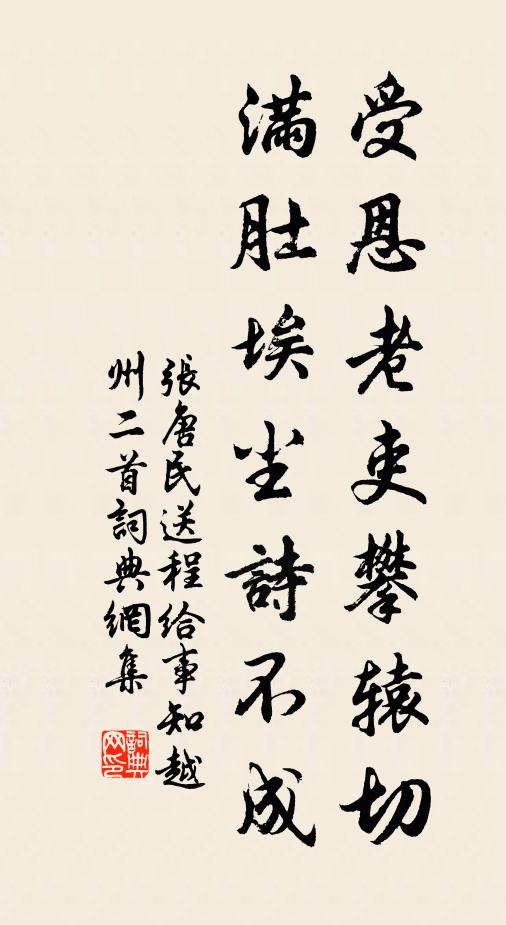 受恩老吏攀辕切
滿肚埃尘詩不成
張唐民送程给事知越
州二首詞典網集
詞典
网印